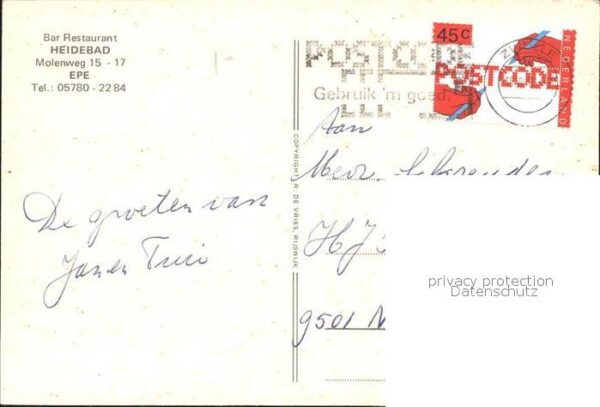 Bar Restaurant
HEIDEBAD
Molenweg 15 - 17
EPE
Tel.: 05780 - 2284
45c
NEDERLAND
POSTCODE
POSTCODE
Gebruik 'm goed.
COPYRIGHT: R. DE VRIES, RIJSWIJK
De groeten van
Jan en
Aan
Mevr.
9501
privacy protection
Datenschutz